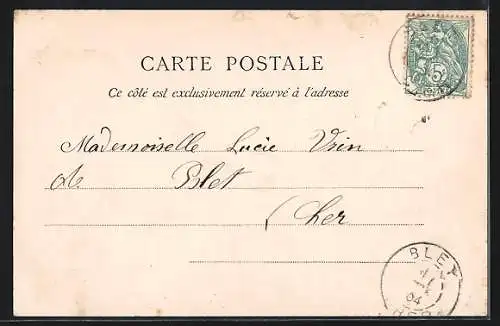 CARTE POSTALE
Ce côté est exclusivement réservé à l'adresse
Mademoiselle Lucie Vrin
de Blet
(Cher
BLET